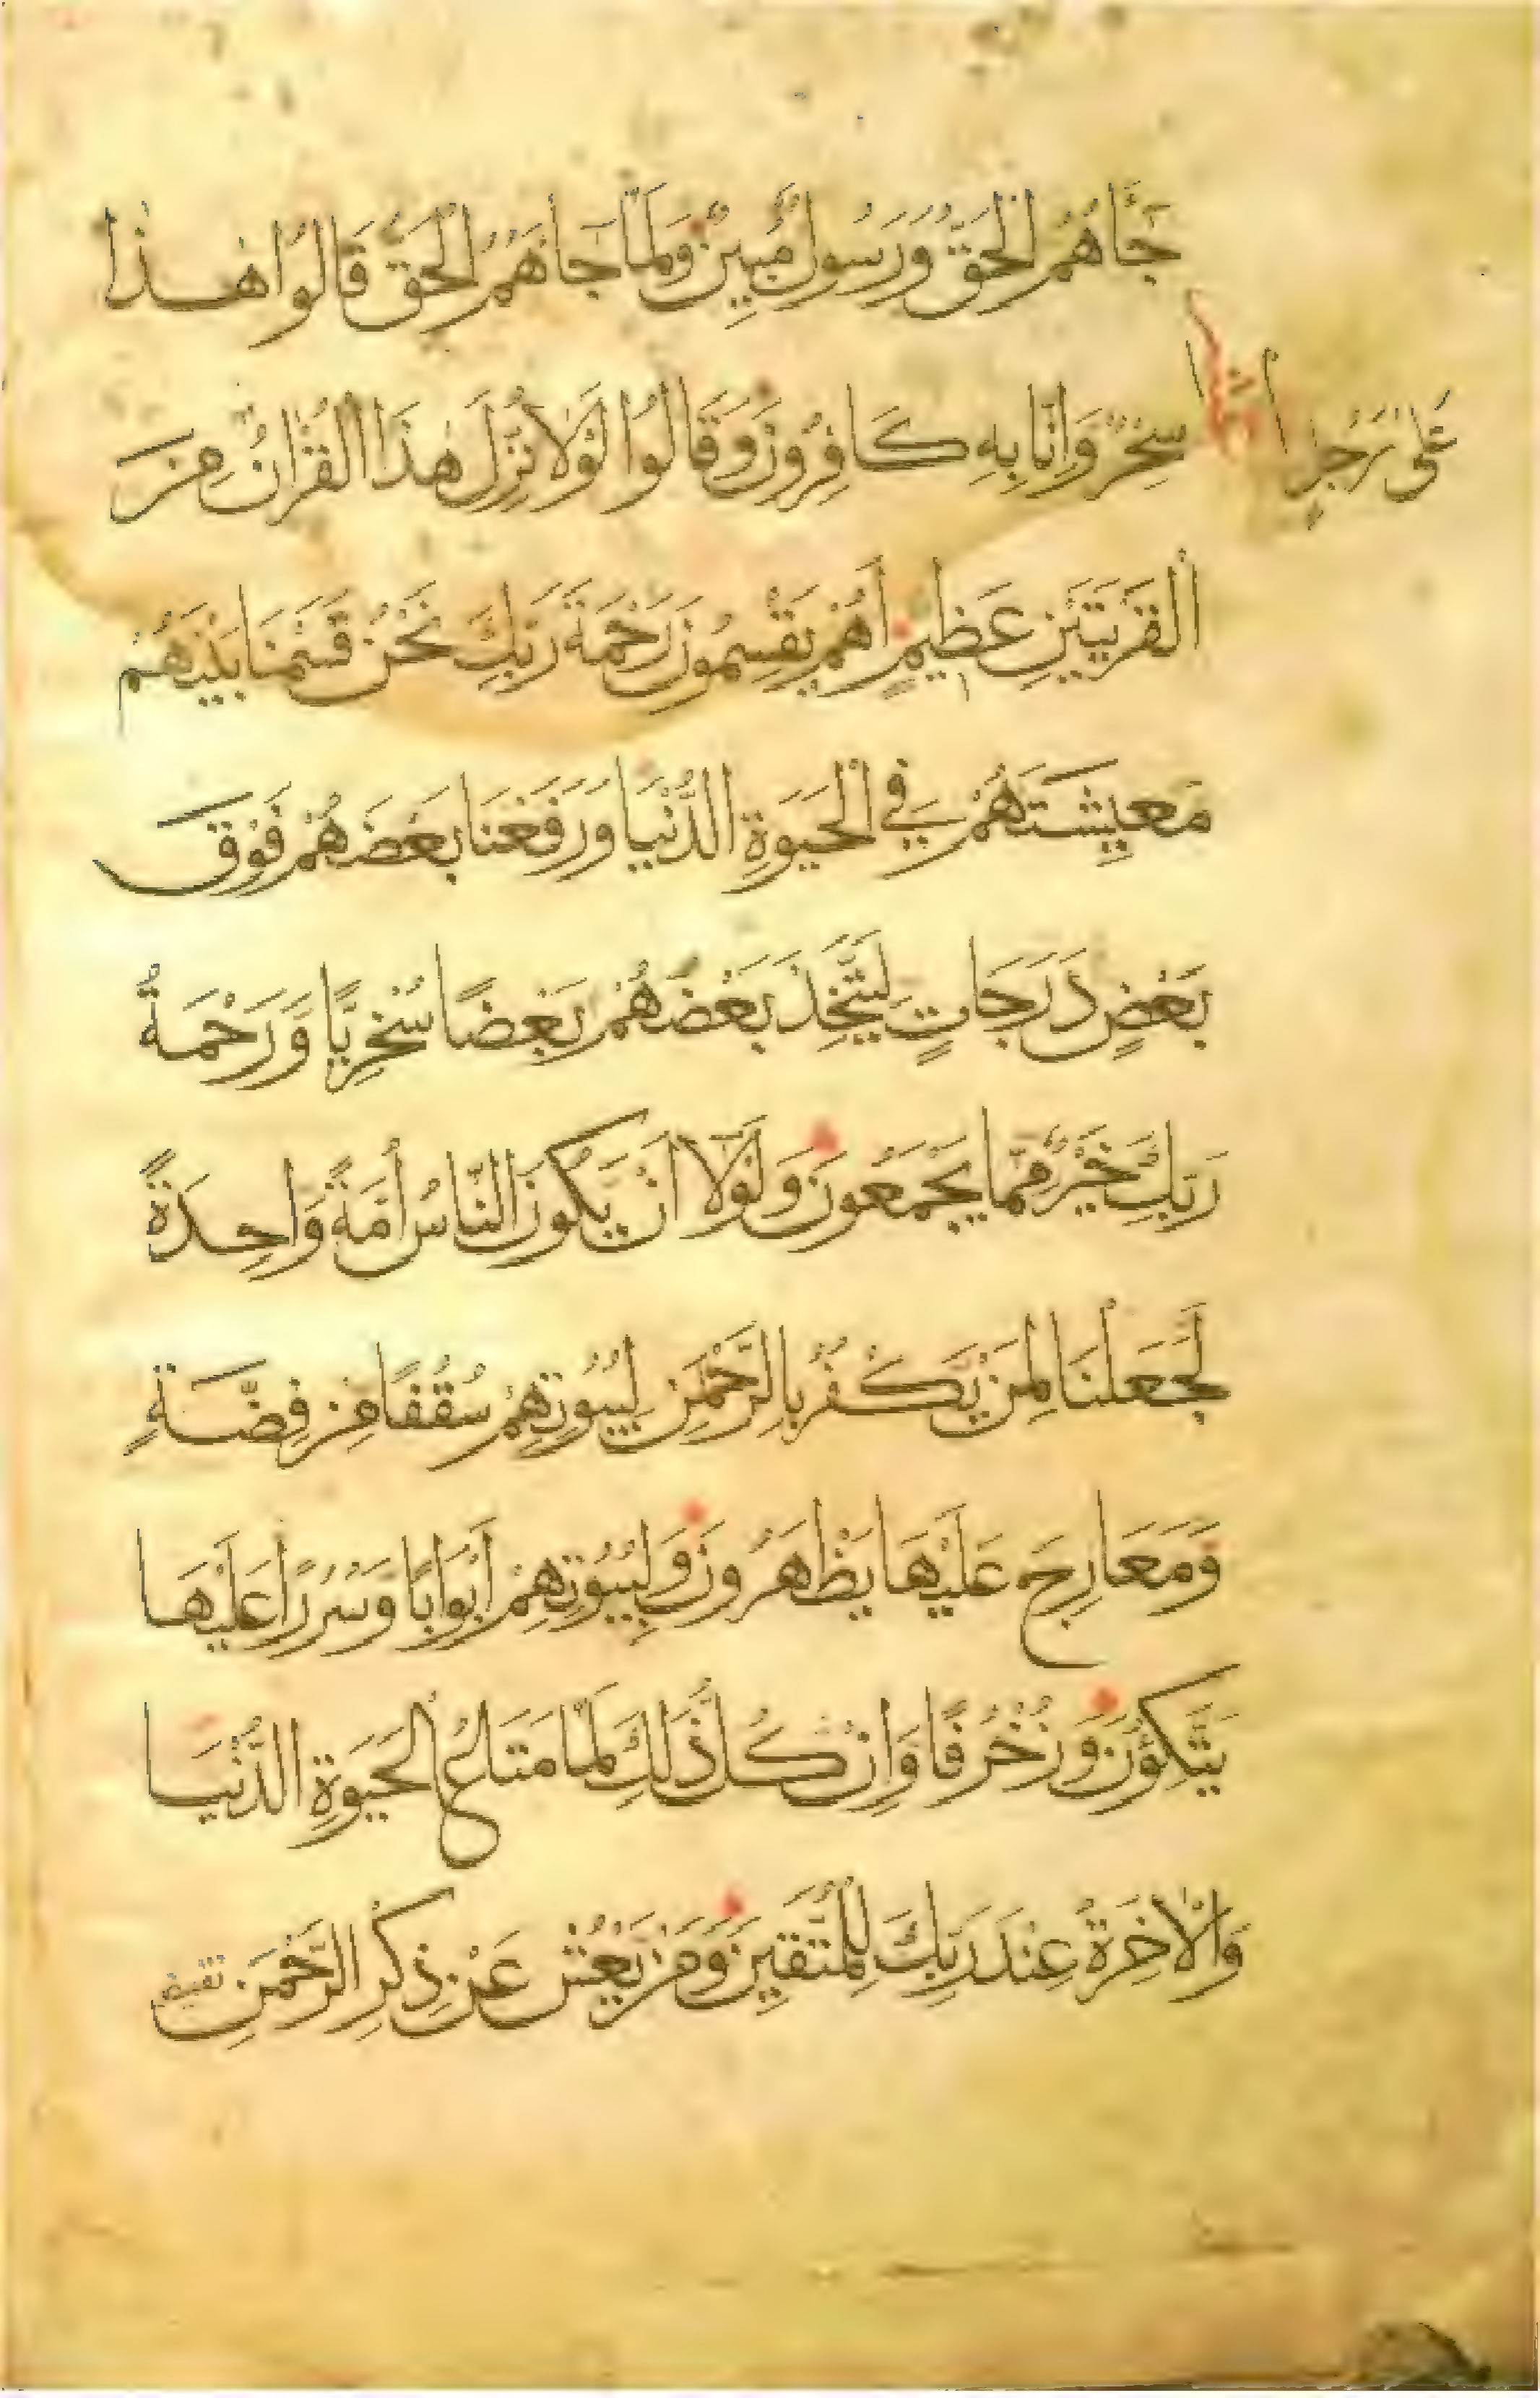 جَآهُمُ الْحَقُّ وَرَسُولٌ مُّبِينٌ وَلَمَّا جَآهُمُ الْحَقُّ قَالُوا هٰذَا
سِحْرٌ وَاِنَّا بِهِ كَافِرُونَ وَقَالُوا لَوْلَا نُزِّلَ هٰذَا الْقُرْاٰنُ مِنَ
عَلٰى رَجُلٍ
الْقَرْيَتَيْنِ عَظِيمٍ اَهُمْ يَقْسِمُونَ رَحْمَةَ رَبِّكَ نَحْنُ قَسَمْنَا بَيْنَهُمْ
مَعِيشَتَهُمْ فِي الْحَيَوةِ الدُّنْيَا وَرَفَعْنَا بَعْضَهُمْ فَوْقَ
بَعْضٍ دَرَجَاتٍ لِيَتَّخِذَ بَعْضُهُمْ بَعْضًا سُخْرِيًّا وَرَحْمَةُ
رَبِّكَ خَيْرٌ مِّمَّا يَجْمَعُونَ وَلَوْلَآ اَنْ يَّكُونَ النَّاسُ اُمَّةً وَاحِدَةً
لَجَعَلْنَا لِمَنْ يَّكْفُرُ بِالرَّحْمٰنِ لِبُيُوتِهِمْ سُقُفًا مِنْ فِضَّةٍ
وَمَعَارِجَ عَلَيْهَا يَظْهَرُونَ وَلِبُيُوتِهِمْ اَبْوَابًا وَسُرُرًا عَلَيْهَا
يَتَّكِؤُنَ وَزُخْرُفًا وَاِنْ كُلُّ ذٰلِكَ لَمَّا مَتَاعُ الْحَيَوةِ الدُّنْيَا
وَالْاٰخِرَةُ عِنْدَ رَبِّكَ لِلْمُتَّقِينَ وَمَنْ يَعْشُ عَنْ ذِكْرِ الرَّحْمٰنِ نقيض